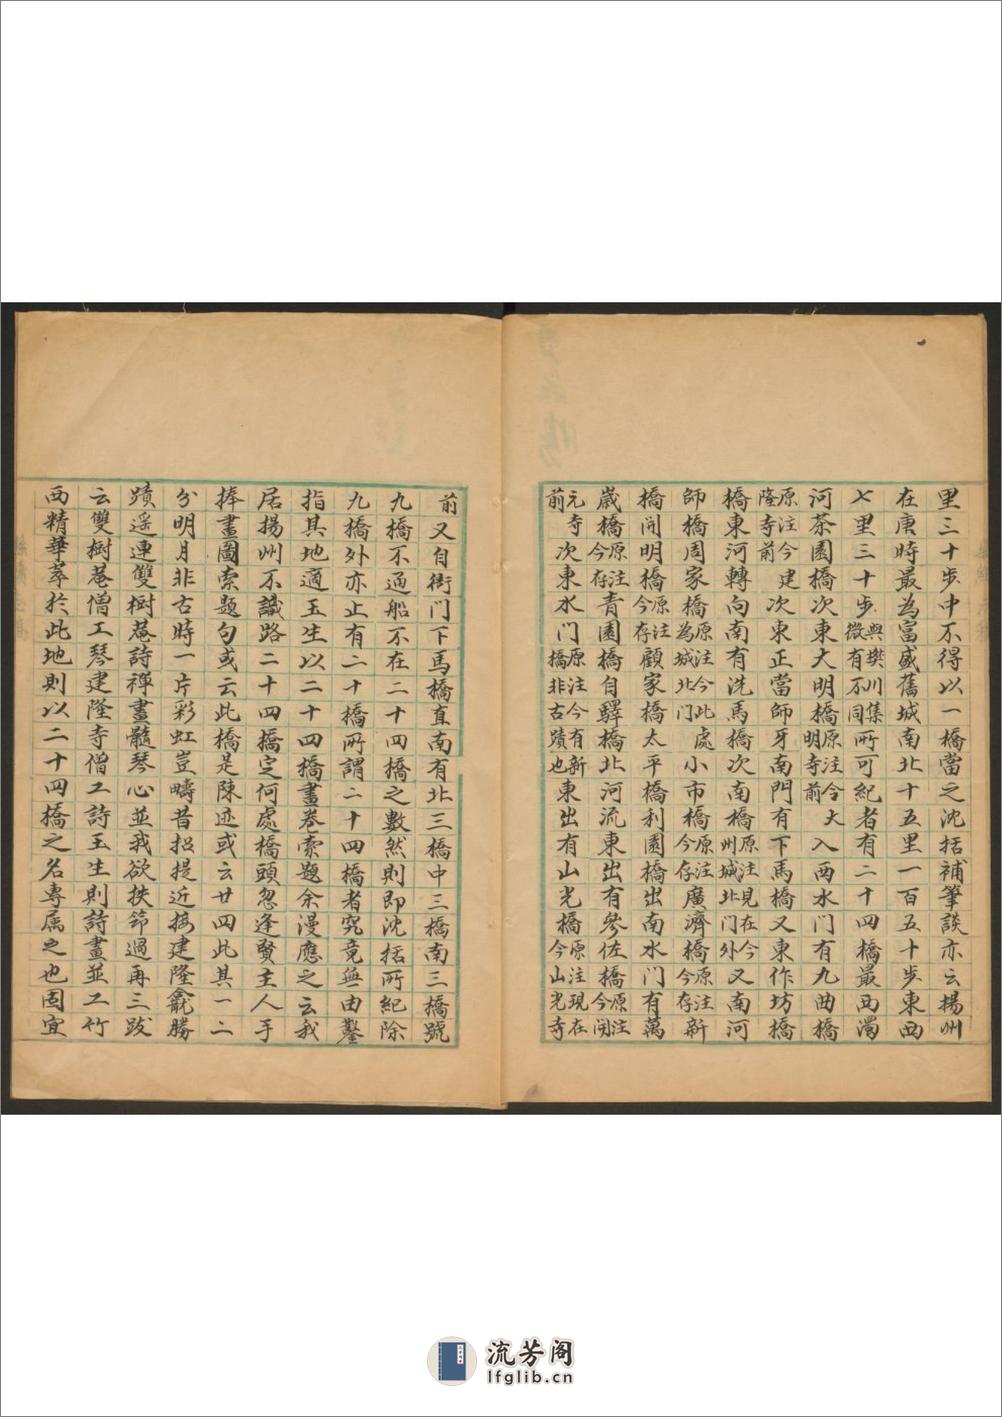 里三十步中不得以一橋當之沈括補筆談亦云揚州
在唐時最為富盛舊城南北十五里一百五十步東西
七里三十步與樊川集微有不同所可紀者有二十四橋最西濁
河茶園橋次東大明橋原注今大明寺前入西水門有九曲橋
原注今建隆寺前次東正當師牙南門有下馬橋又東作坊橋
橋東河轉向南有洗馬橋次南橋原注見在今州城北門外又南河
師橋周家橋原注今此處為城北門小市橋原注今存廣濟橋原注今存新
橋開明橋原注今存顧家橋太平橋利園橋出南水門有萬
歲橋原注今存青園橋自驛橋北河流東出有參佐橋原注今開
元寺前次東水門原注今有新橋非古蹟也東出有山光橋原注現在今山光寺
前又自衙門下馬橋直南有北三橋中三橋南三橋號
九橋不通船不在二十四橋之數然則即沈括所紀除
九橋外亦止有二十橋所謂二十四橋者究竟無由鑿
指其地適玉生以二十四橋畫卷索題余漫應之云我
居揚州不識路二十四橋定何處橋頭忽逢賢主人手
捧畫圖索題句或云此橋是陳迹或云廿四此其一二
分明月非古時一片彩虹豈疇昔招提近接建隆龕勝
蹟遥連雙樹菴詩禪畫髓琴心並我欲扶筇過再三跋
云雙樹菴僧工琴建隆寺僧工詩玉生則詩畫並工竹
西精華萃於此地則以二十四橋之名專属之也固宜
流芳阁
lfglib.cn